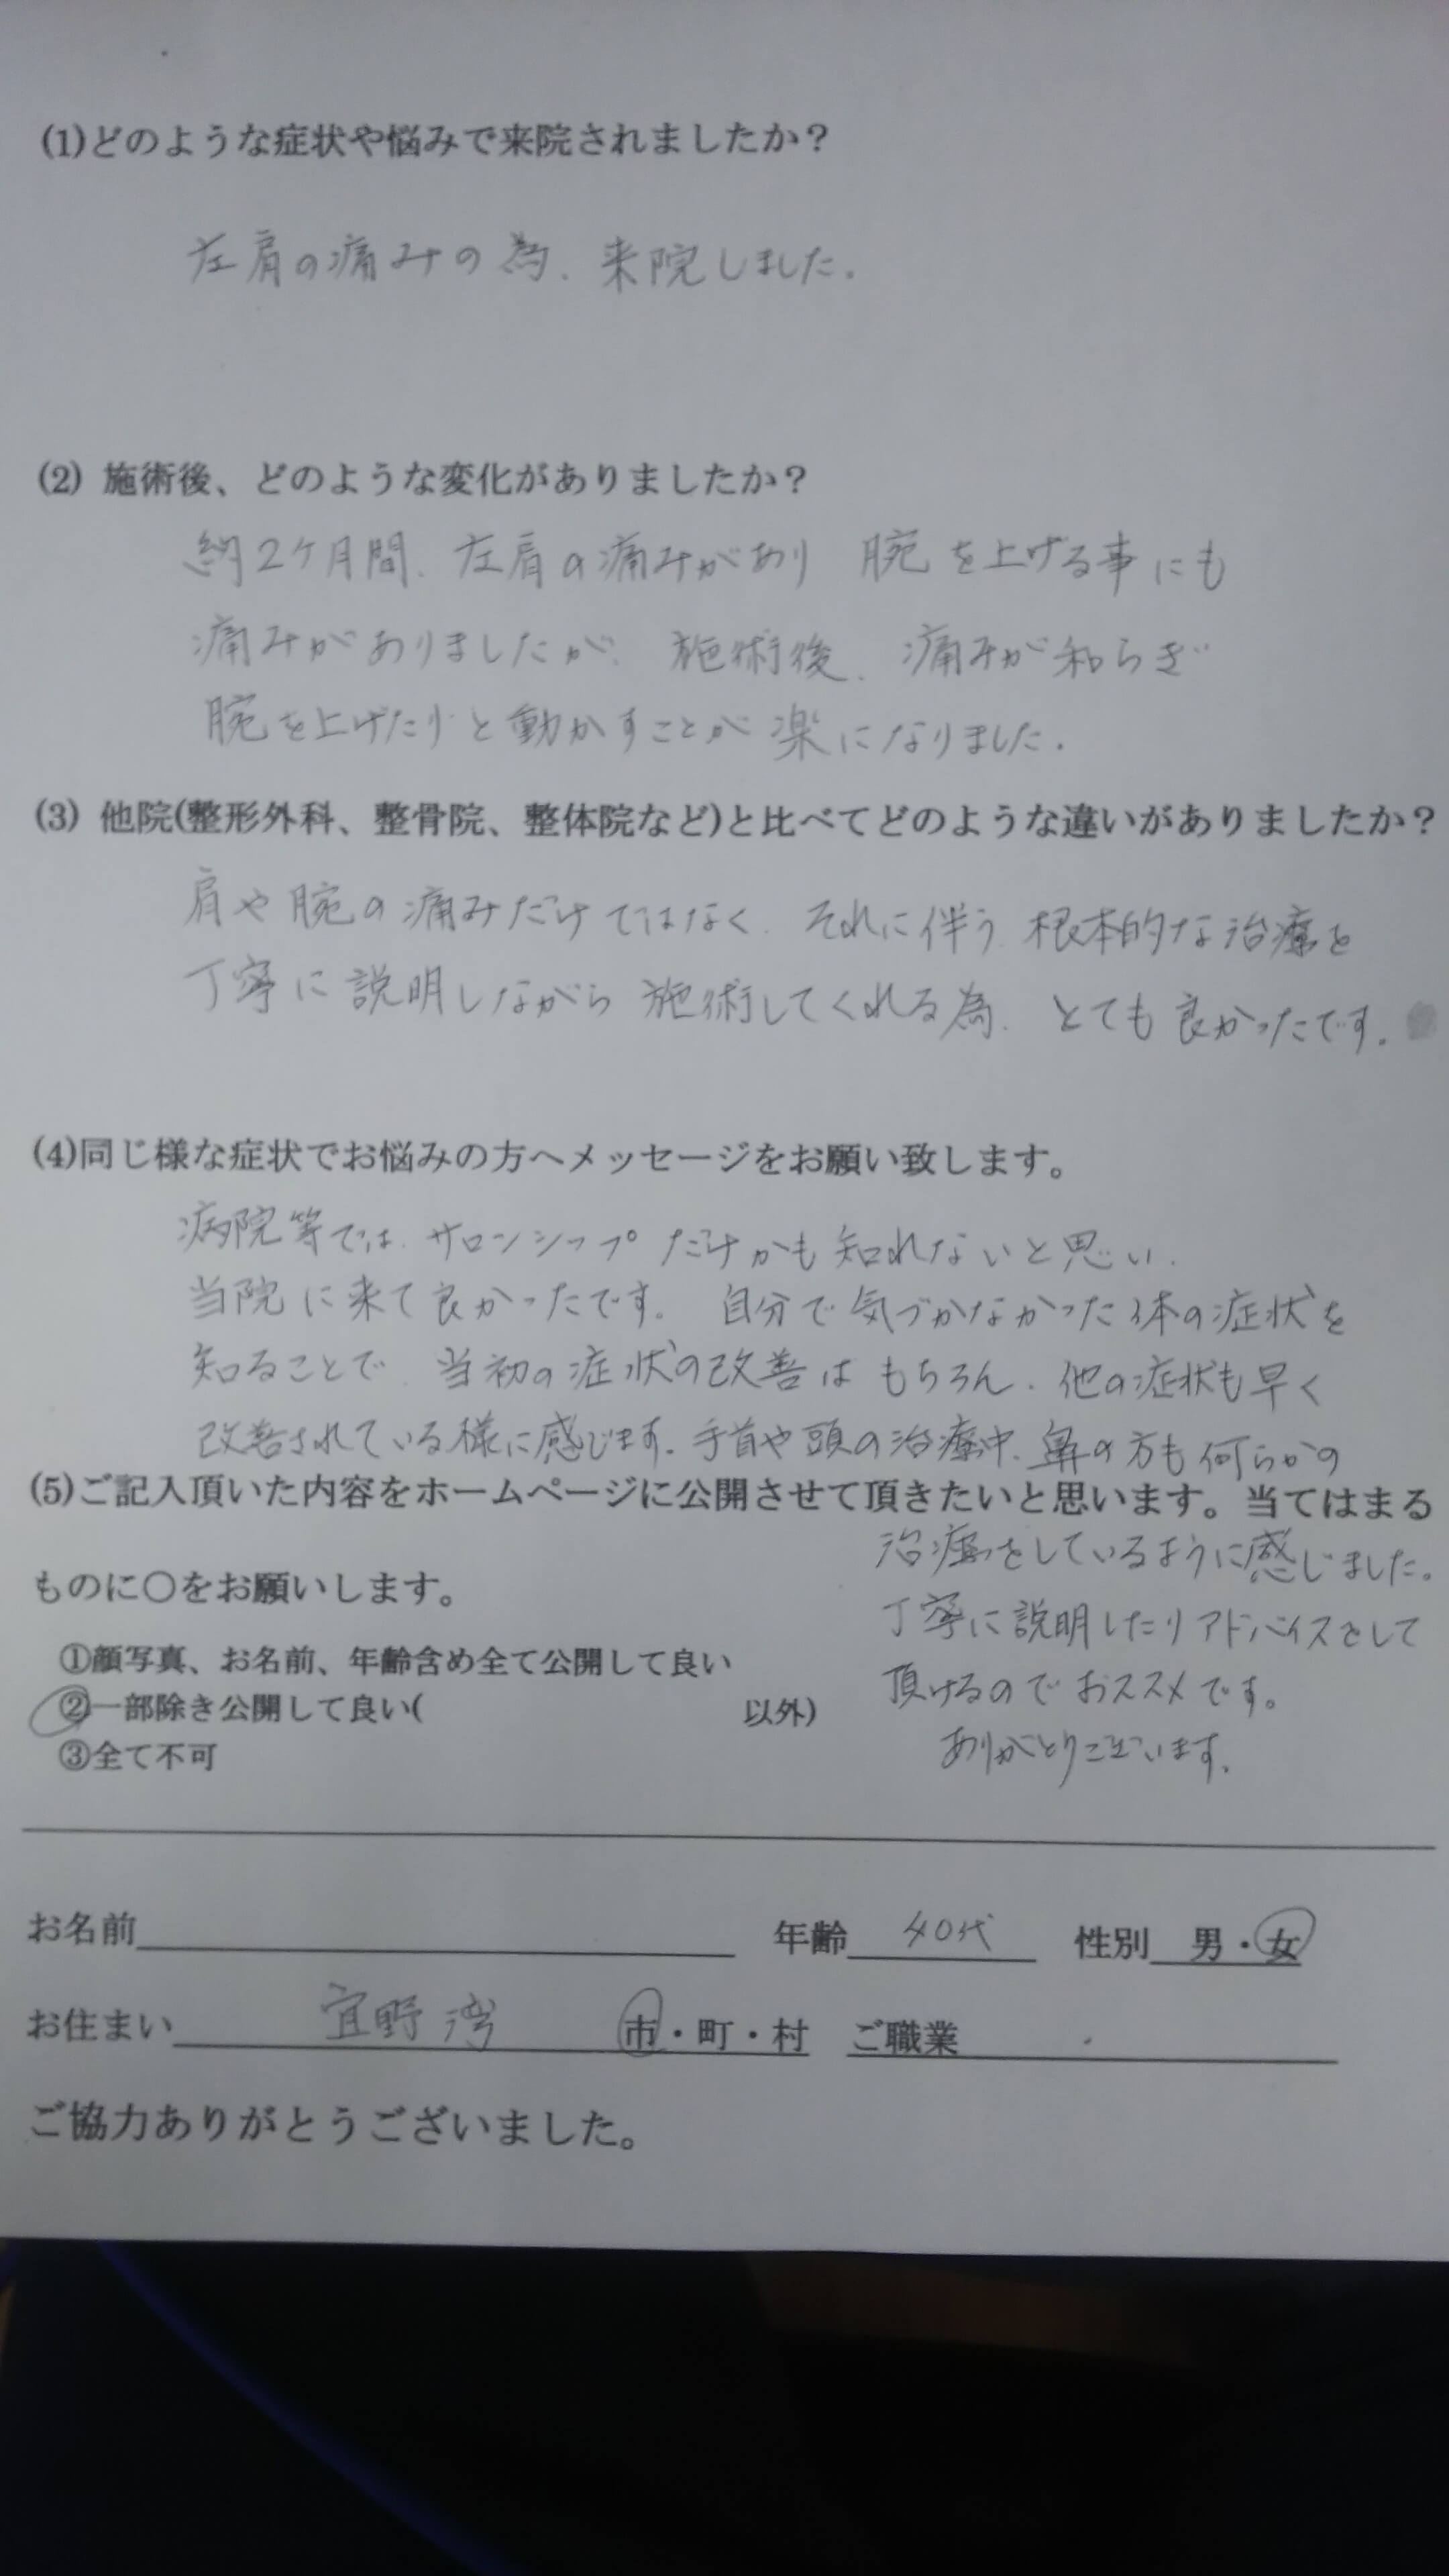 (1)どのような症状や悩みで来院されましたか？
左肩の痛みの為、来院しました。
(2) 施術後、どのような変化がありましたか？
約2ケ月間、左肩の痛みがあり 腕を上げる事にも
痛みがありましたが、施術後、痛みが和らぎ
腕を上げたりと動かすことが楽になりました。
(3) 他院(整形外科、整骨院、整体院など)と比べてどのような違いがありましたか？
肩や腕の痛みだけではなく、それに伴う根本的な治療を
丁寧に説明しながら施術してくれる為、とても良かったです。
(4)同じ様な症状でお悩みの方へメッセージをお願い致します。
病院等では、サロンシップだけかも知れないと思い、
当院に来て良かったです。自分で気づかなかった体の症状を
知ることで、当初の症状の改善はもちろん、他の症状も早く
改善されている様に感じます。手首や頭の治療中、鼻の方も何らかの
(5)ご記入頂いた内容をホームページに公開させて頂きたいと思います。当てはまる
治療をしているように感じました。
ものに〇をお願いします。
丁寧に説明したりアドバイスをして
①顔写真、お名前、年齢含め全て公開して良い
頂けるのでおススメです。
②一部除き公開して良い( 以外)
ありがとうございます。
③全て不可
お名前 年齢 40代 性別 男・女
お住まい 宜野湾 市・町・村 ご職業
ご協力ありがとうございました。